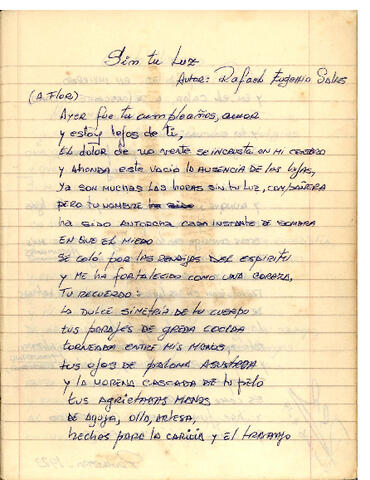 Sin tu Luz
Autor: Rafael Eugenio Salas
(A. FLOR)
Ayer fue tu cumpleaños, amor
y estoy lejos de ti,
El dolor de no verte se incrusta en mi cerebro
y ahonda este vacío la ausencia de los hijos,
Ya son muchas las horas sin tu Luz, compañera
pero tu nombre ha sido
ha sido antorcha cada instante de sombra
en que el miedo
se coló por las rendijas del espiritu
y me ha fortalecido como una coraza,
Tu recuerdo:
La dulce simetría de tu cuerpo
tus parajes de greda cocida
torneada entre mis manos
tus ojos de paloma asustada
y la morena cascada de tu pelo
tus agrietadas manos
de aguja, olla, artesa,
hechos para la caricia y el trabajo